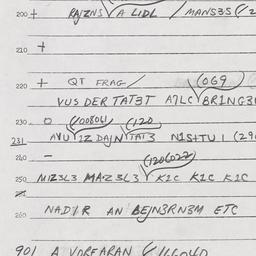 200 + RAJZNS A LIDL / MAN535 (/2
210 +
220 + QT FRAG / (069
VUS DER TAT3T A7LC BR1NG3
230 O (/00806/ (120
231 AVU 1Z DAJN TAT3 N1STTU1 (29
240 - (1206022
250 M1Z3L3 MA1Z3L3 K1C K1C K1C
260 NAD/R AN BEJN3RN3M ETC
901 A VORFARAN (/166040